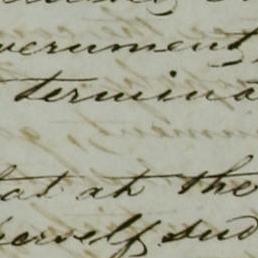 vernment,
termina
at at the
herself sud